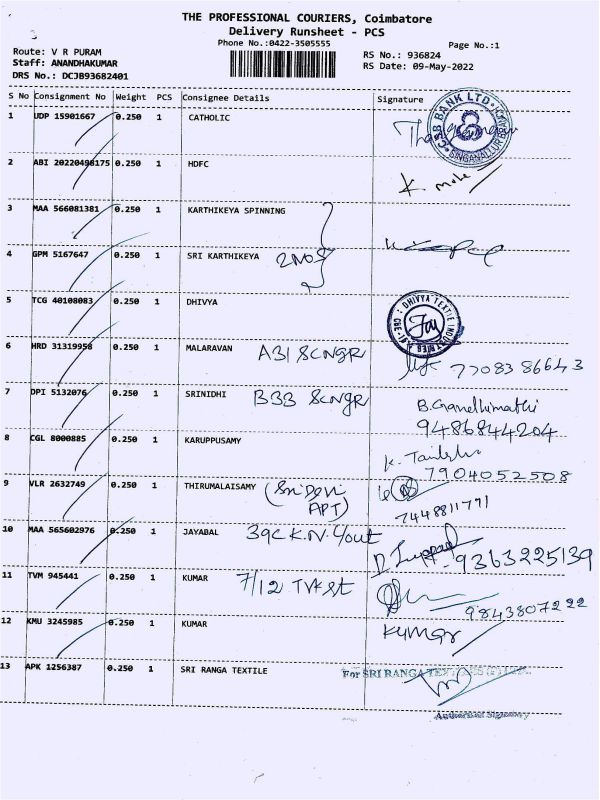 THE PROFESSIONAL COURIERS, Coimbatore
Delivery Runsheet - PCS
Phone No.:0422-3505555
Page No.:1
Route: V R PURAM
Staff: ANANDHAKUMAR
DRS No.: DCJB93682401
RS No.: 936824
RS Date: 09-May-2022
S No Consignment No Weight PCS Consignee Details Signature
1 UDP 15901667 0.250 1 CATHOLIC
CSB BANK LTD. SINGANALLUR BRANCH
2 ABI 20220498175 0.250 1 HDFC
3 MAA 566081381 0.250 1 KARTHIKEYA SPINNING
4 GPM 5167647 0.250 1 SRI KARTHIKEYA 2NOS
5 TCG 40108083 0.250 1 DHIVYA
DHIVYA TEXTILE INDUSTRIES
For
6 HRD 31319958 0.250 1 MALARAVAN A31 SCNGR 7708386643
7 DPI 5132076 0.250 1 SRINIDHI B33 SCNGR B.Gandhimathi
9486844204
8 CGL 8000885 0.250 1 KARUPPUSAMY K.
7904052508
9 VLR 2632749 0.250 1 THIRUMALAISAMY (Sri Devi
APT) 7448811791
10 MAA 565602976 0.250 1 JAYABAL 39C K.N. 9363225139
11 TVM 945441 0.250 1 KUMAR 7/12 TVK St
9843807222
12 KMU 3245985 0.250 1 KUMAR KUMAR
13 APK 1256387 0.250 1 SRI RANGA TEXTILE For SRI RANGA
Authorised Signatory